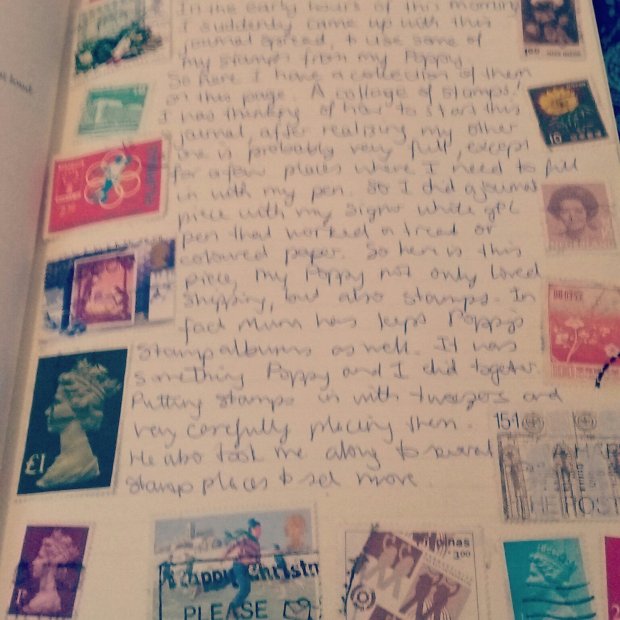 In the early hours of this morning
I suddenly came up with this
journal spread, to use some of
my stamps from my Poppy.
So here I have a collection of them
on this page. A collage of stamps!
I was thinking of how to start this
journal, after realising my other
one is probably very full, except
for a few places where I need to fill
in with my pen. So I did a journal
piece with my signo white gel
pen that worked a treat on
coloured paper. So here is this
piece, my Poppy not only loved
shipping, but also stamps. In
fact Mum has kept Poppy's
stamp albums as well. It was
something Poppy and I did together.
Putting stamps in with tweezers and
very carefully placing them.
He also took me along to several
stamp places to get more.
£1
151
A HAR
THE POST
A Happy Christm
PLEASE
Pilipinas
3.00